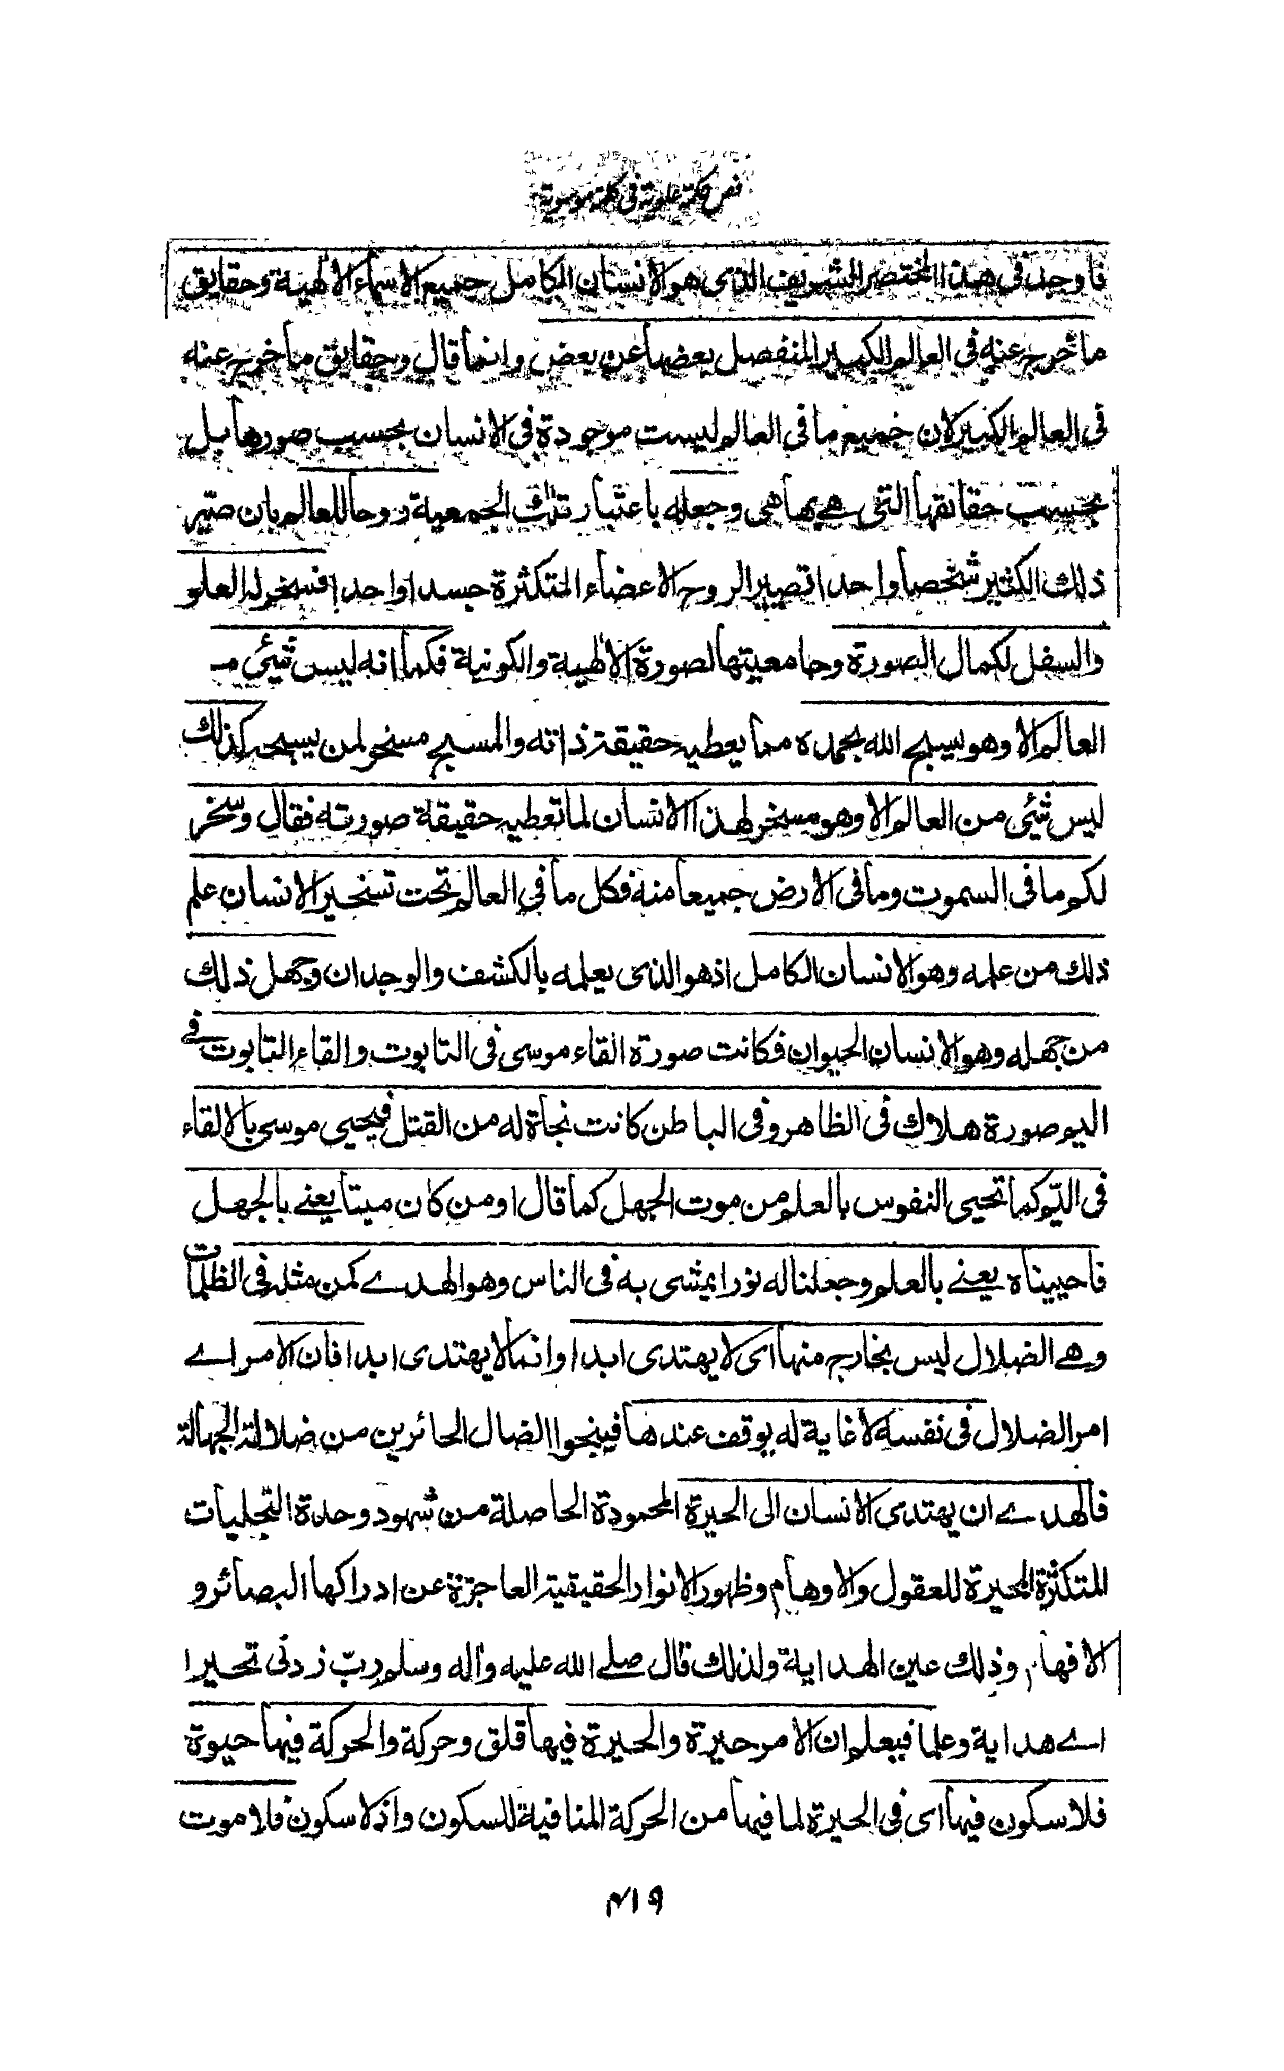 فص حكمة علوية في كلمة موسوية
فاوجد في هذا المختصر الشريف الذى هو الانسان الكامل جميع الاسماء الالهية وحقايق
ما خرج عنه في العالم الكبير المنفصل بعضها عن بعض وانما قال وحقايق ما خرج عنه
في العالم الكبير لان جميع ما في العالم ليست موجودة في الانسان بحسب صورها بل
بحسب حقائقها التى هي بها هي وجعله باعتبار تلك الجمعية روحا للعالم بان صيّر
ذلك الكثير شخصا واحدا تصيير الروح الاعضاء المتكثرة جسدا واحدا فسخر له العلو
والسفل لكمال الصورة وجامعيتها لصورة الالهية والكونية فكما انه ليس شيئ من
العالم الا وهو يسبح الله بحمده مما يعطيه حقيقة ذاته والمسبح مسخر لمن يسبحه كذلك
ليس شيئ من العالم الا وهو مسخر لهذا الانسان لما تعطيه حقيقة صورته فقال وسخر
لكم ما في السموت وما في الارض جميعا منه فكل ما في العالم تحت تسخير الانسان علم
ذلك من علمه وهو الانسان الكامل اذ هو الذى يعلمه بالكشف والوجدان وجهل ذلك
من جهله وهو الانسان الحيوان فكانت صورة القاء موسى في التابوت والقاء التابوت في
اليم صورة هلاك في الظاهر وفي الباطن كانت نجاة له من القتل فيحيى موسى بالالقاء
في اليّم كما تحيى النفوس بالعلم من موت الجهل كما قال اومن كان ميتا يعني بالجهل
فاحييناه يعني بالعلم وجعلنا له نورا يمشى به في الناس وهو الهدى كمن مثله في الظلمات
وهي الضلال ليس بخارج منها اى لا يهتدى ابدا وانما لا يهتدى ابدا فان الامر اے
امر الضلال في نفسه لا غاية له يوقف عندها فينجوا الضال الحائرين من ضلالة الجهالة
فالهدى ان يهتدى الانسان الى الحيرة المحمودة الحاصلة من شهود وحدة التجليات
المتكثرة المحيرة للعقول والاوهام وظهور الانوار الحقيقية العاجزة عن ادراكها البصائر و
الافهام وذلك عين الهداية ولذلك قال صلے الله عليه وآله وسلم ربّ زدنى تحيرا
اے هداية وعلما فيعلم ان الامر حيرة والحيرة فيها قلق وحركة والحركة فيها حيوة
فلا سكون فيها اى في الحيرة لما فيها من الحركة المنافية للسكون واذ لا سكون فلا موت
۴۱۹